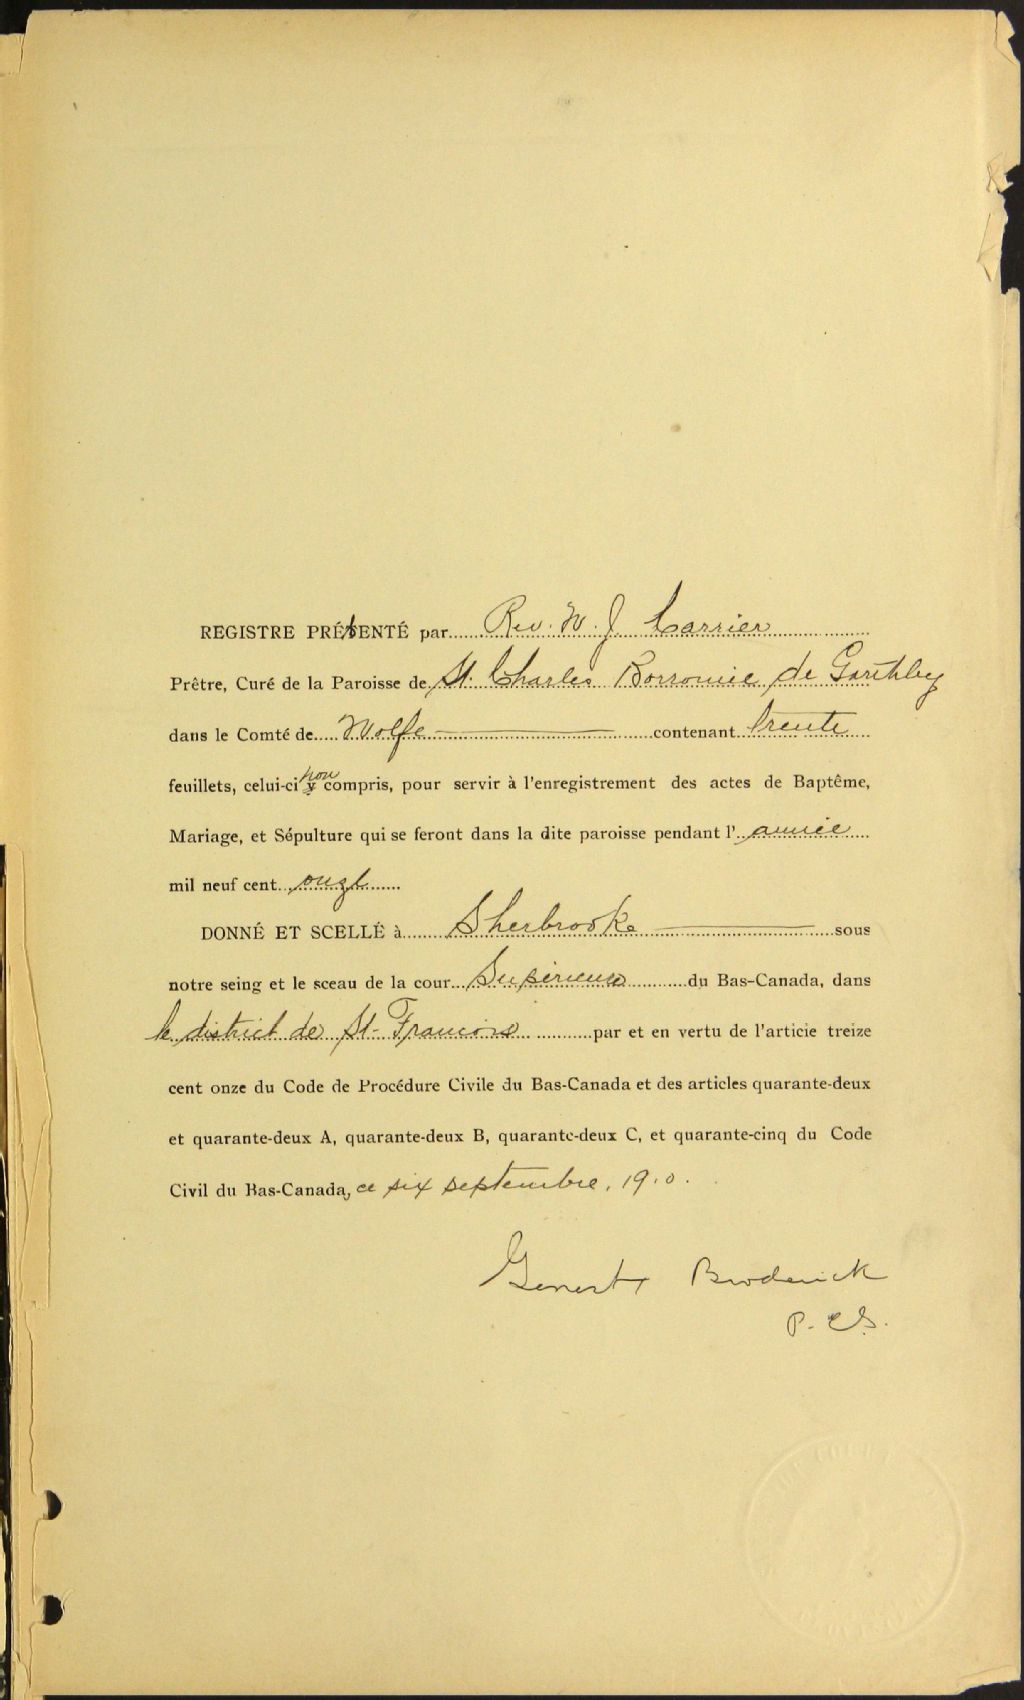 REGISTRE PRÉSENTÉ par Rev. W. J. Carrier
Prêtre, Curé de la Paroisse de St. Charles Borromée de Garthby
dans le Comté de Wolfe contenant trente
feuillets, celui-ci non compris, pour servir à l'enregistrement des actes de Baptême,
Mariage, et Sépulture qui se feront dans la dite paroisse pendant l'année
mil neuf cent onze
DONNÉ ET SCELLÉ à Sherbrooke sous
notre seing et le sceau de la cour Supérieure du Bas-Canada, dans
le district de St-Francois par et en vertu de l'article treize
cent onze du Code de Procédure Civile du Bas-Canada et des articles quarante-deux
et quarante-deux A, quarante-deux B, quarante-deux C, et quarante-cinq du Code
Civil du Bas-Canada, ce six septembre, 1910.
Genest & Broderick
P. C. S.